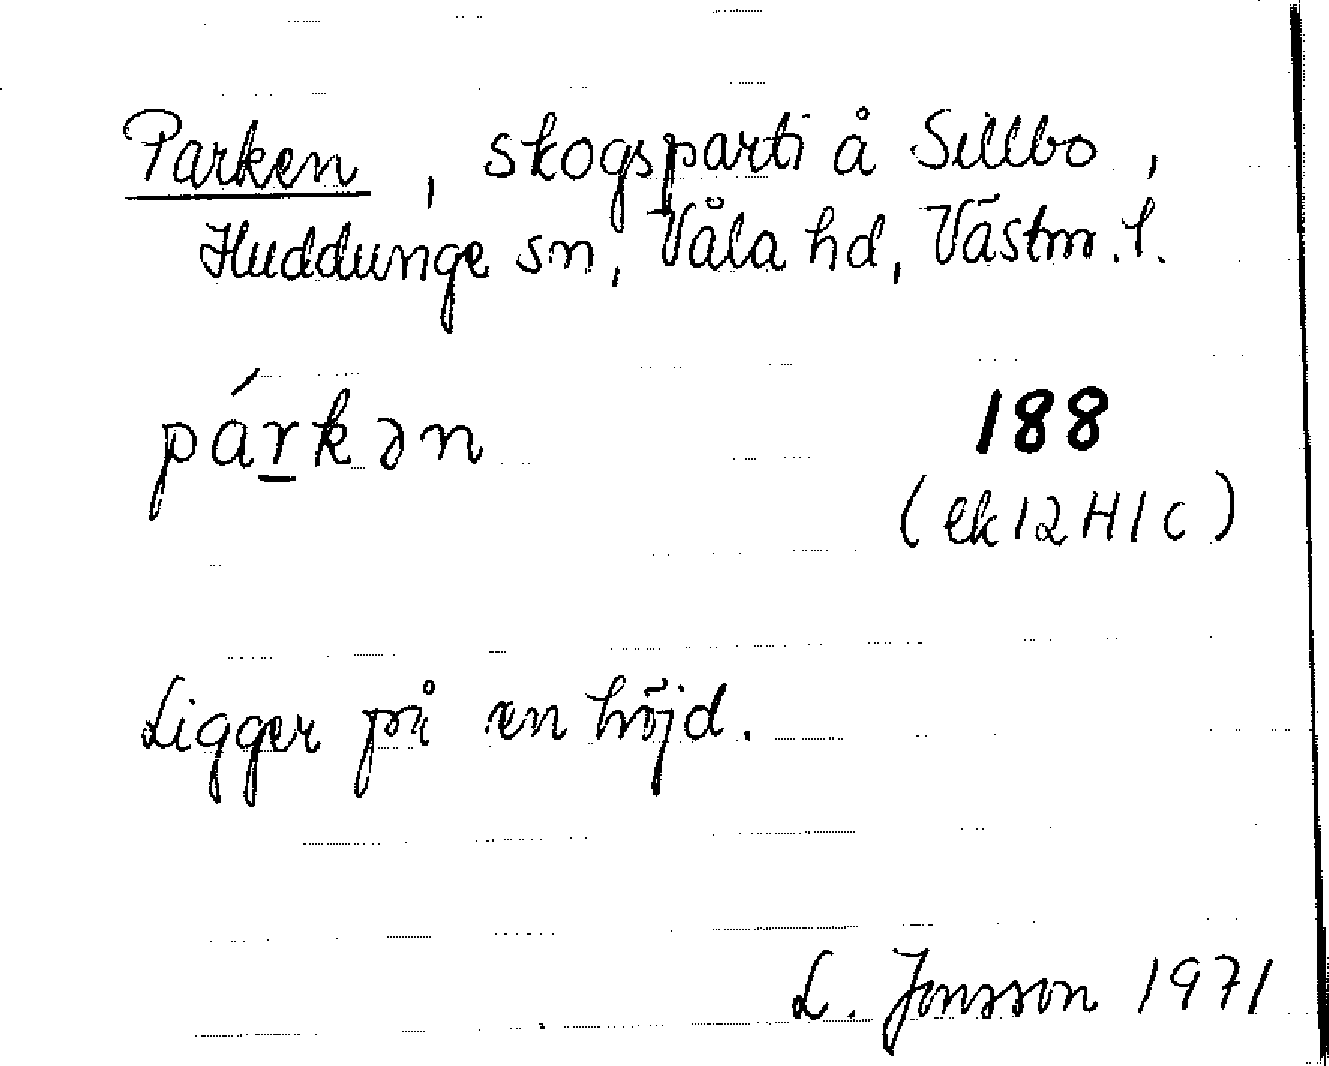 Parken, skogsparti å Sillbo,
Huddunge sn, Våla hd, Västm. l.
párkən
188
(ek 12 H 1 c)
Ligger på en höjd.
L. Jonsson 1971